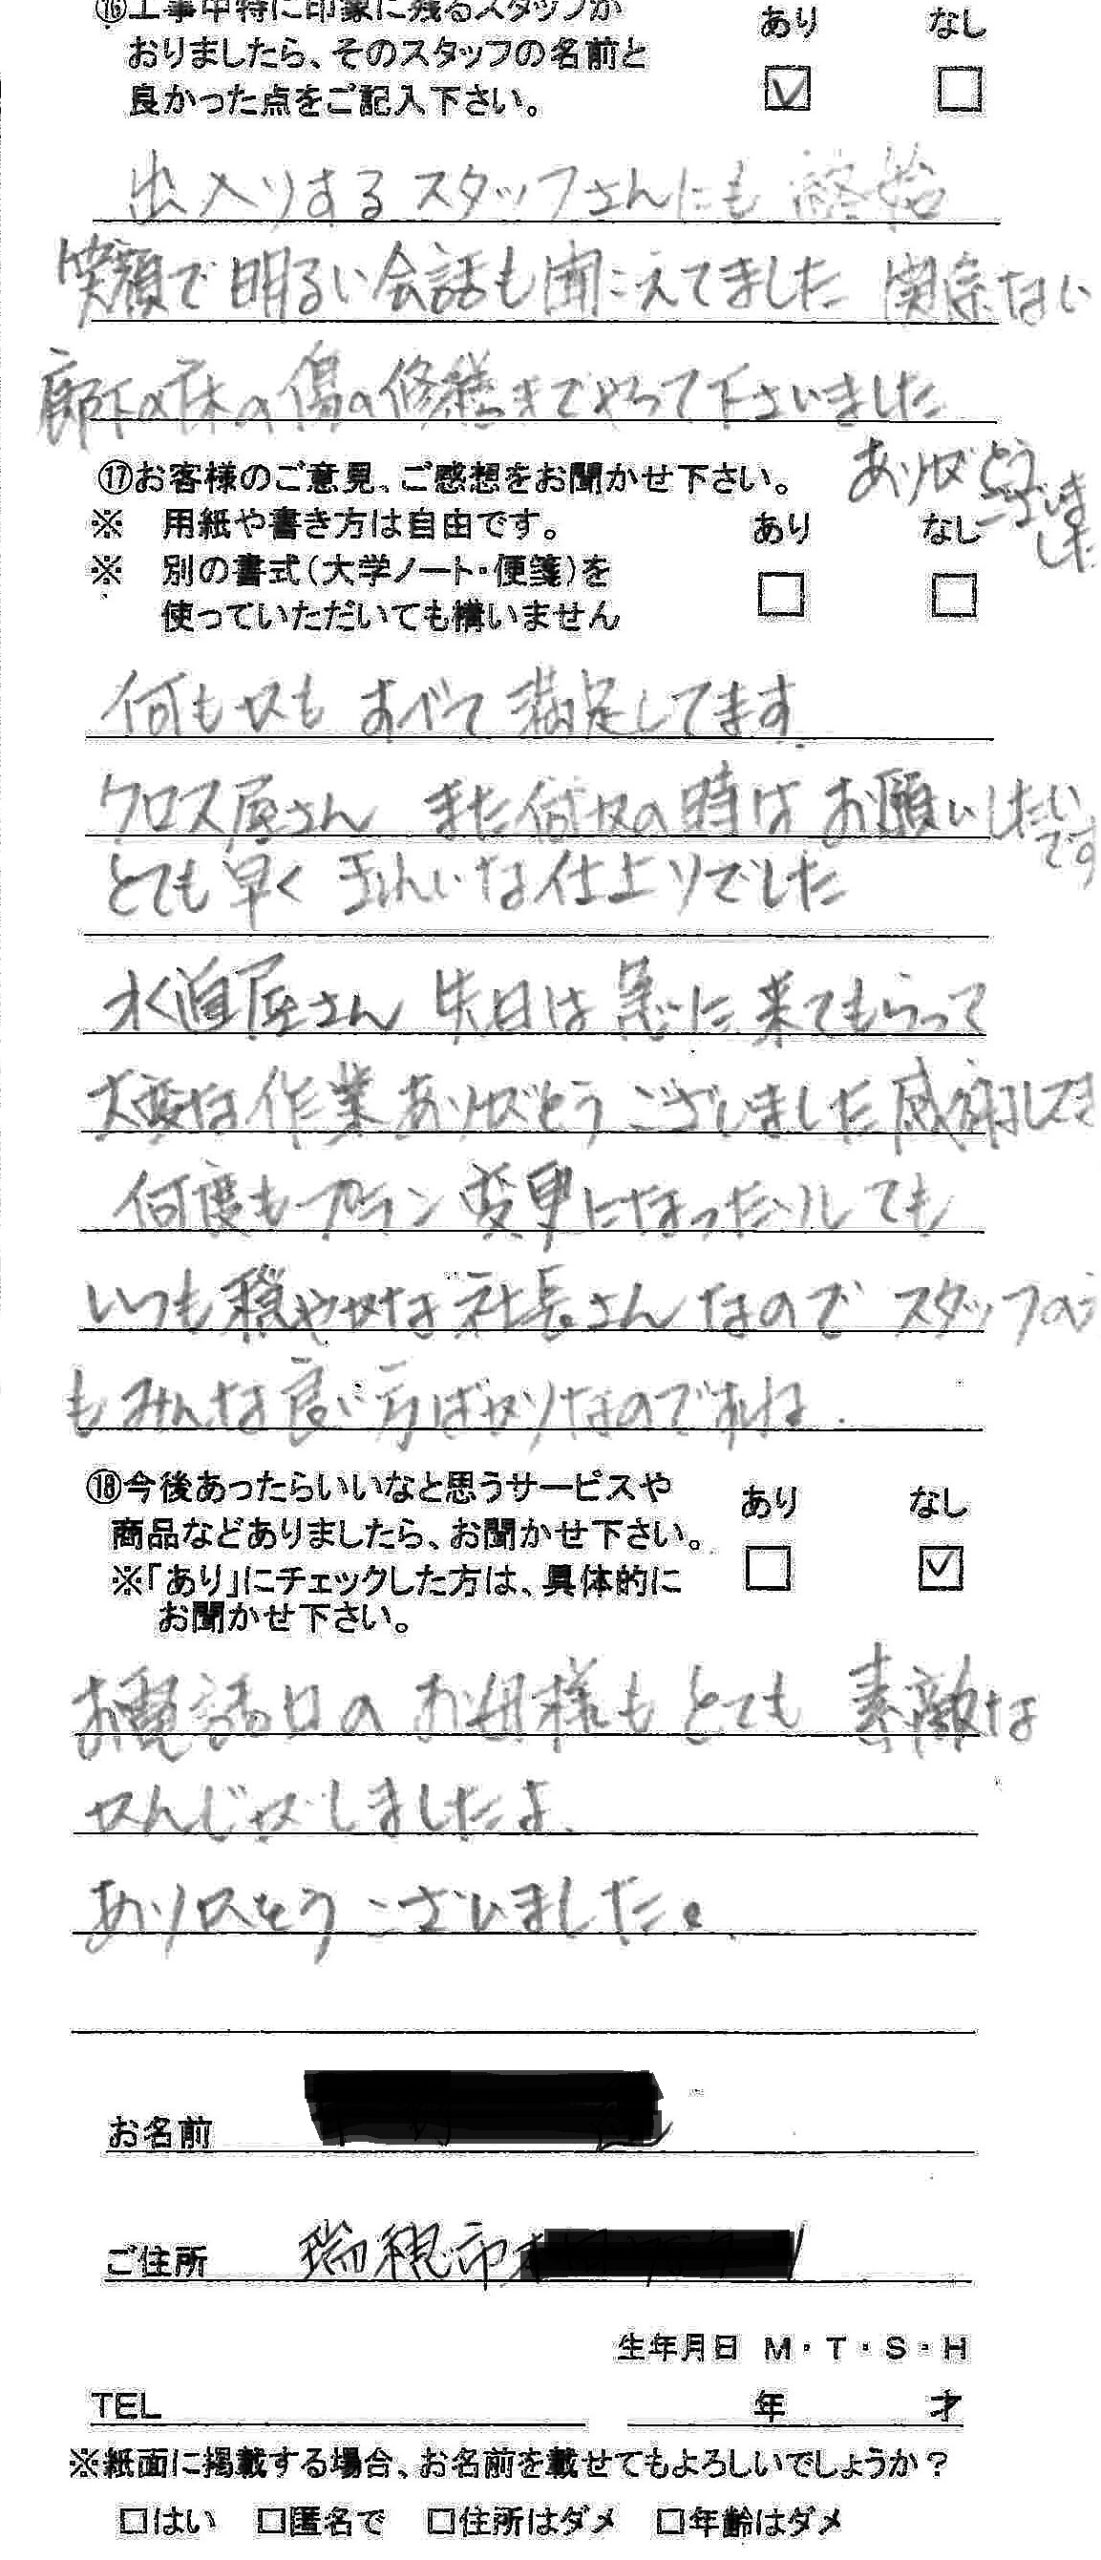 ⑯工事中特に印象に残るスタッフが
おりましたら、そのスタッフの名前と
良かった点をご記入下さい。
あり なし
出入りするスタッフさんにも 終始
笑顔で明るい会話も聞こえてました 関係ない
廊下の床の傷の修繕までやって下さいました
ありがとう
ございま
した
⑰お客様のご意見、ご感想をお聞かせ下さい。
※ 用紙や書き方は自由です。
あり なし
※ 別の書式(大学ノート・便箋)を
使っていただいても構いません
何もかも すべて 満足してます
クロス屋さん また何かの時は お願いしたい
です
とても早く きれいな仕上りでした
水道屋さん 先日は 急に 来てもらって
大変な作業ありがとうございました 感謝してます
何度もプラン変更になったりしても
いつも穏やかな社長さんなので スタッフの方
もみんな良い方ばかりなのですね.
⑱今後あったらいいなと思うサービスや
商品などありましたら、お聞かせ下さい。
※「あり」にチェックした方は、具体的に
お聞かせ下さい。
あり なし
お電話口の お母様も とても 素敵な
かんじがしましたよ.
ありがとうございました。
お名前
ご住所 瑞穂市
生年月日 M・T・S・H
TEL 年 才
※紙面に掲載する場合、お名前を載せてもよろしいでしょうか？
□はい □匿名で □住所はダメ □年齢はダメ